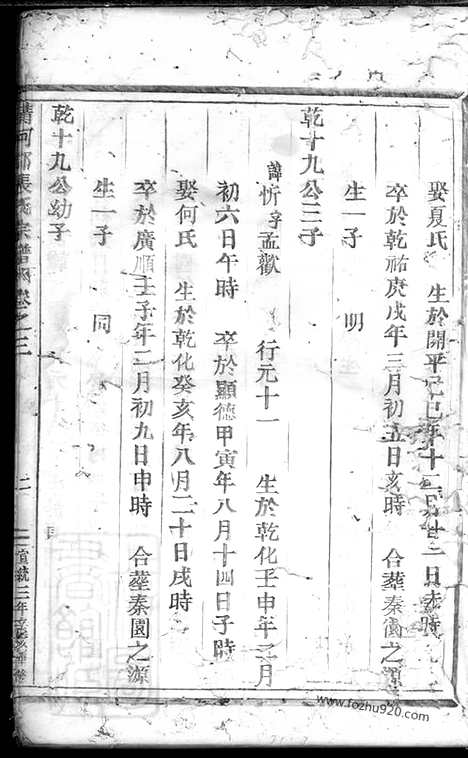 娶夏氏 生於開平己巳年十二月廿二日未時
卒於乾祐庚戌年三月初五日亥時 合葬秦園之源
生一子 明
乾十九公三子
諱忻字孟歡 行元十一 生於乾化壬申年 月
初六日午時 卒於顯德甲寅年八月十四日子時
娶何氏 生於乾化癸亥年八月二十日戌時
卒於廣順壬子年二月初九日申時 合葬秦園之源
生一子 同
乾十九公幼子
清河郡張氏宗譜 卷之三
二
宣統三年
www.fozhu920.com